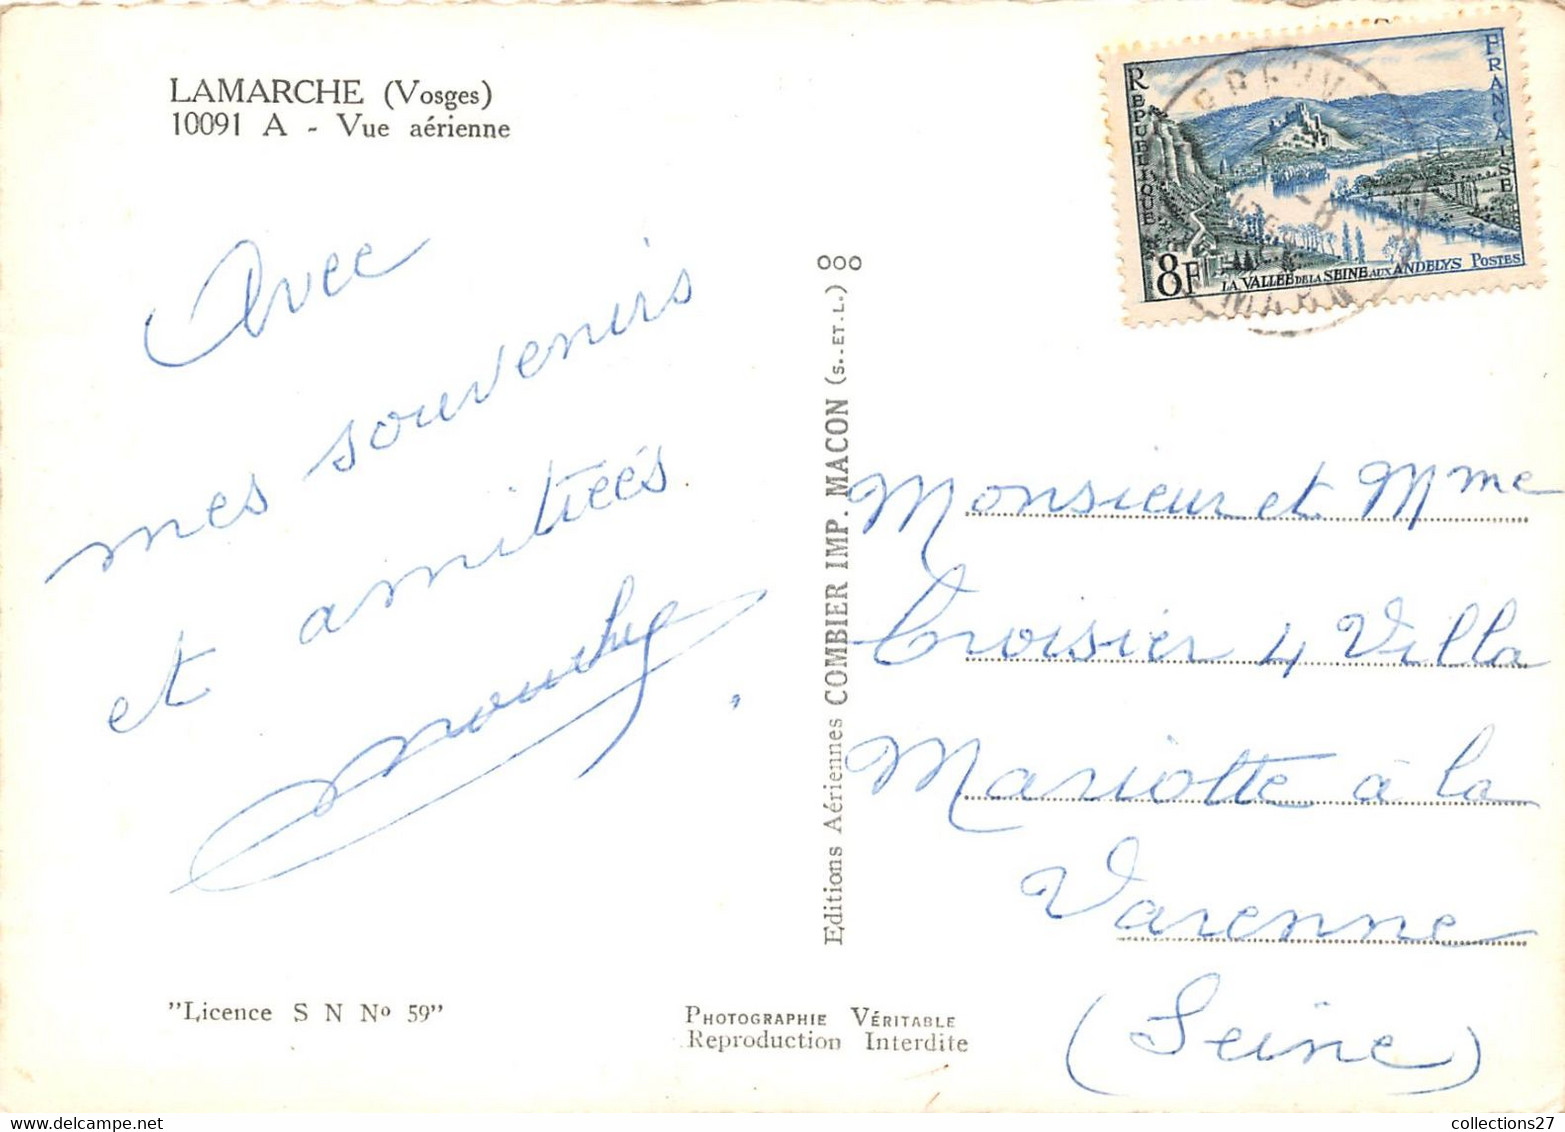 LAMARCHE (Vosges)
10091 A - Vue aérienne
Avec
mes souvenirs
et amitiées
"Licence S N Nº 59"
PHOTOGRAPHIE VÉRITABLE
Reproduction Interdite
Editions Aériennes COMBIER IMP. MACON (S.-ET.L.) OOO
RÉPUBLIQUE FRANÇAISE
8F
LA VALLÉE DE LA SEINE AUX ANDELYS POSTES
Monsieur et Mme
Croisier 4 Villa
Mariotte à la
Varenne
(Seine)
collections27